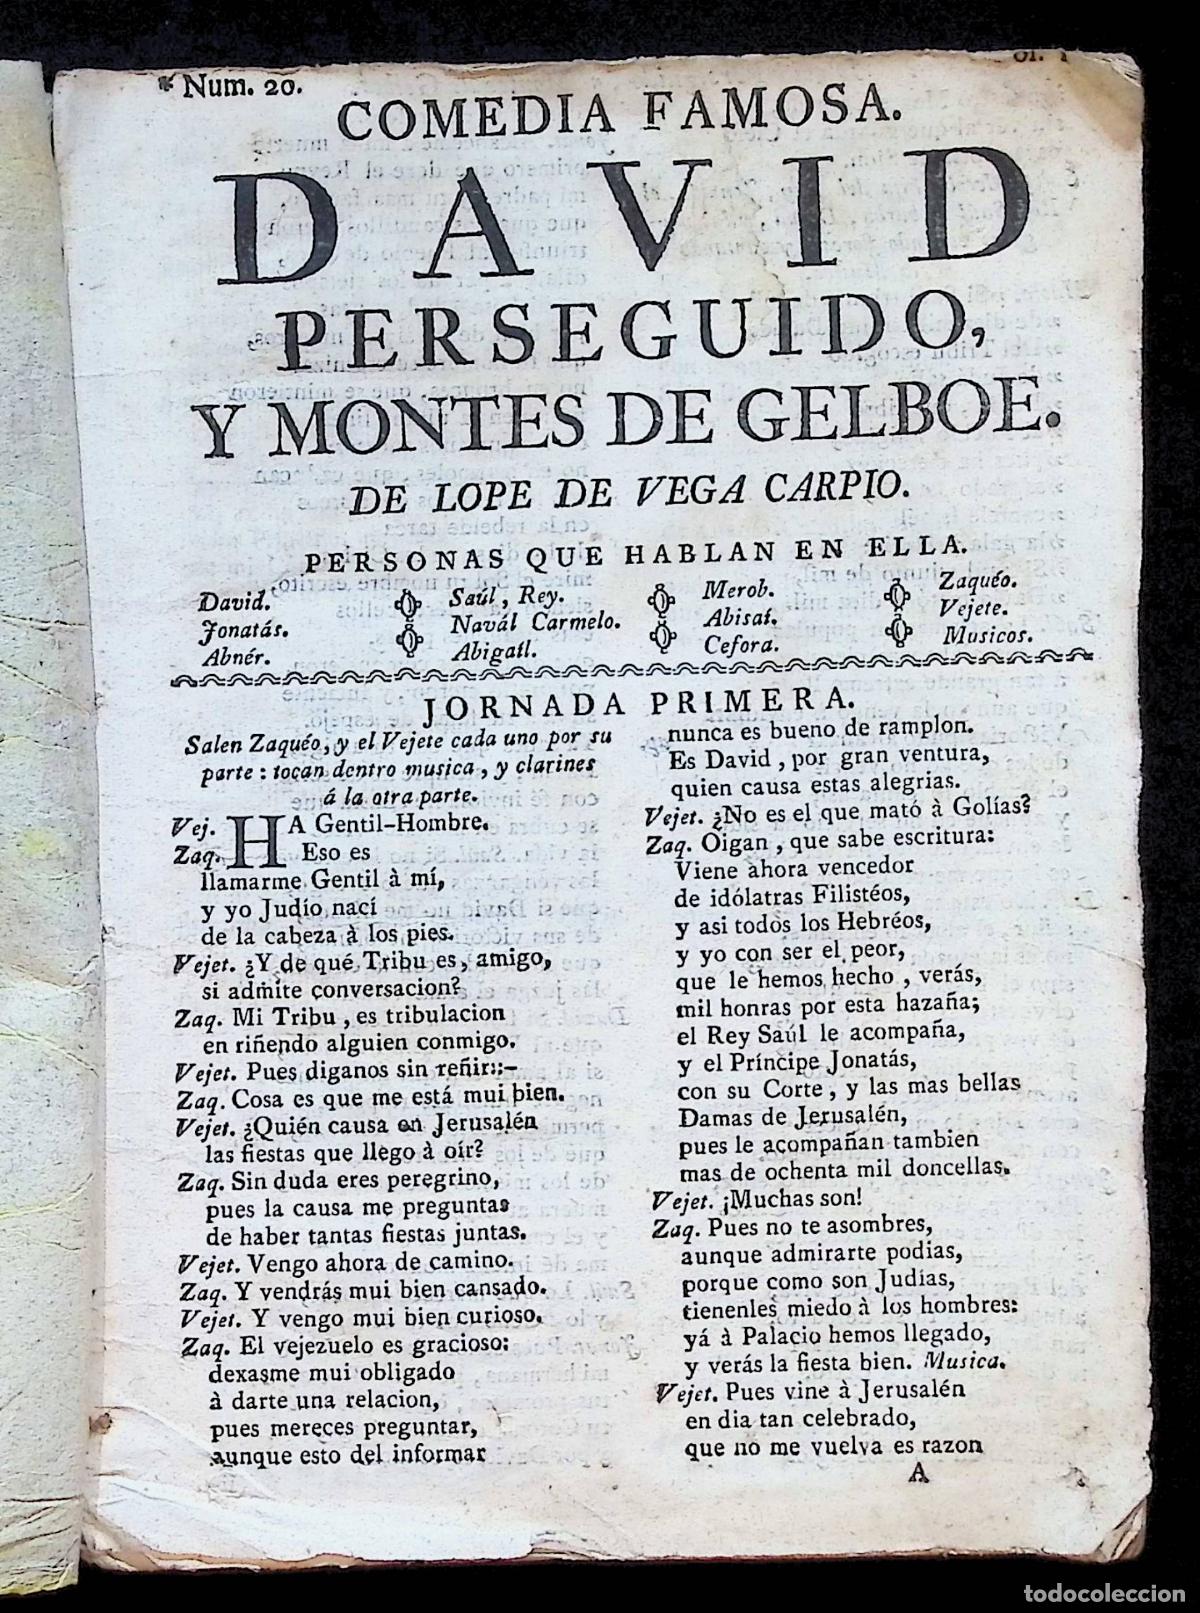 Num. 20.
COMEDIA FAMOSA.
DAVID
PERSEGUIDO,
Y MONTES DE GELBOE.
DE LOPE DE VEGA CARPIO.
PERSONAS QUE HABLAN EN ELLA.
David.
Jonatás.
Abnér.
Saúl, Rey.
Navál Carmelo.
Abigaíl.
Merob.
Abisaí.
Cefora.
Zaquéo.
Vejete.
Musicos.
JORNADA PRIMERA.
Salen Zaquéo, y el Vejete cada uno por su
parte: tocan dentro musica, y clarines
á la otra parte.
Vej. HA Gentil-Hombre.
Zaq. Eso es
llamarme Gentil à mí,
y yo Judío nací
de la cabeza à los pies.
Vejet. ¿Y de qué Tribu es, amigo,
si admite conversacion?
Zaq. Mi Tribu, es tribulacion
en riñendo alguien conmigo.
Vejet. Pues diganos sin reñir::-
Zaq. Cosa es que me está mui bien.
Vejet. ¿Quién causa en Jerusalén
las fiestas que llego à oír?
Zaq. Sin duda eres peregrino,
pues la causa me preguntas
de haber tantas fiestas juntas.
Vejet. Vengo ahora de camino.
Zaq. Y vendrás mui bien cansado.
Vejet. Y vengo mui bien curioso.
Zaq. El vejezuelo es gracioso:
dexasme mui obligado
à darte una relacion,
pues mereces preguntar,
aunque esto del informar
nunca es bueno de ramplon.
Es David, por gran ventura,
quien causa estas alegrias.
Vejet. ¿No es el que mató à Golías?
Zaq. Oigan, que sabe escritura:
Viene ahora vencedor
de idólatras Filistéos,
y asi todos los Hebréos,
y yo con ser el peor,
que le hemos hecho, verás,
mil honras por esta hazaña;
el Rey Saúl le acompaña,
y el Príncipe Jonatás,
con su Corte, y las mas bellas
Damas de Jerusalén,
pues le acompañan tambien
mas de ochenta mil doncellas.
Vejet. ¡Muchas son!
Zaq. Pues no te asombres,
aunque admirarte podias,
porque como son Judías,
tienenles miedo à los hombres:
yá à Palacio hemos llegado,
y verás la fiesta bien. Musica.
Vejet. Pues vine à Jerusalén
en dia tan celebrado,
que no me vuelva es razon
A
todocoleccion